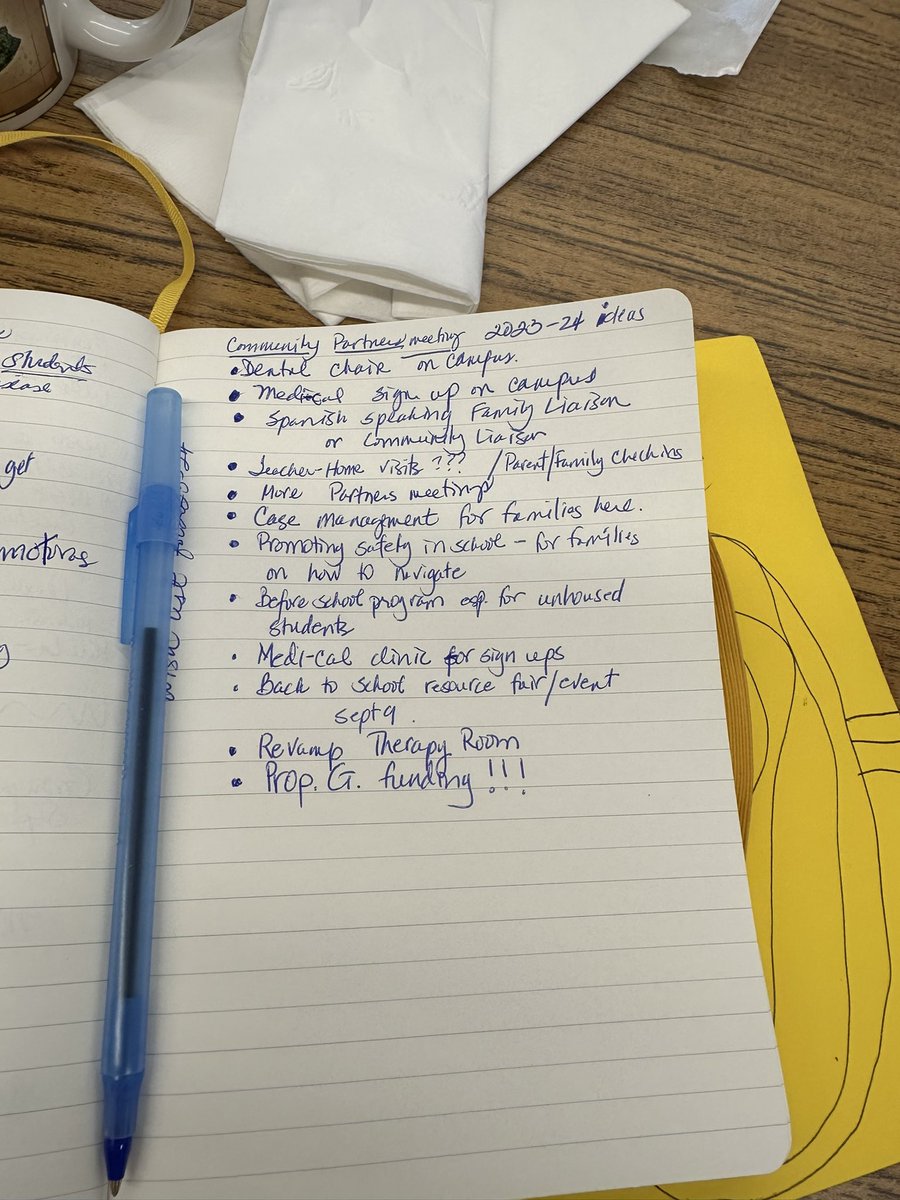 Students
get
Community Partners meeting 2023-24 ideas
• Dental Chair on Campus.
• Medi-cal sign up on campus
• Spanish speaking Family Liaison
or Community Liaison
• Teacher-Home visits ??? / Parent/Family Checkins
• More Partners meetings
• Case management for families here.
• Promoting safety in school - for families
on how to navigate
• Before school program esp. for unhoused
students
• Medi-cal clinic for sign ups
• Back to school resource fair/event
sept 9.
• Revamp Therapy Room
• Prop. G. funding !!!